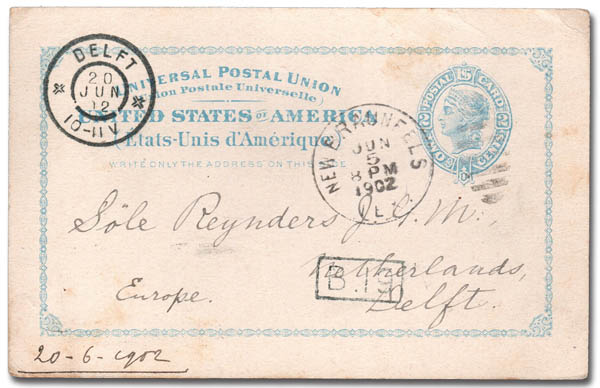 DELFT
20
JUN
12
10-11V
UNIVERSAL POSTAL UNION
(Union Postale Universelle)
UNITED STATES OF AMERICA
(Etats-Unis d'Amérique)
WRITE ONLY THE ADDRESS ON THIS SIDE
U.S. POSTAL CARD
TWO CENTS
NEW BRAUNFELS
JUN
5
8 PM
1902
Söle Reynders J.G.M.,
Netherlands,
B.19
Europe.
Delft.
20-6-1902